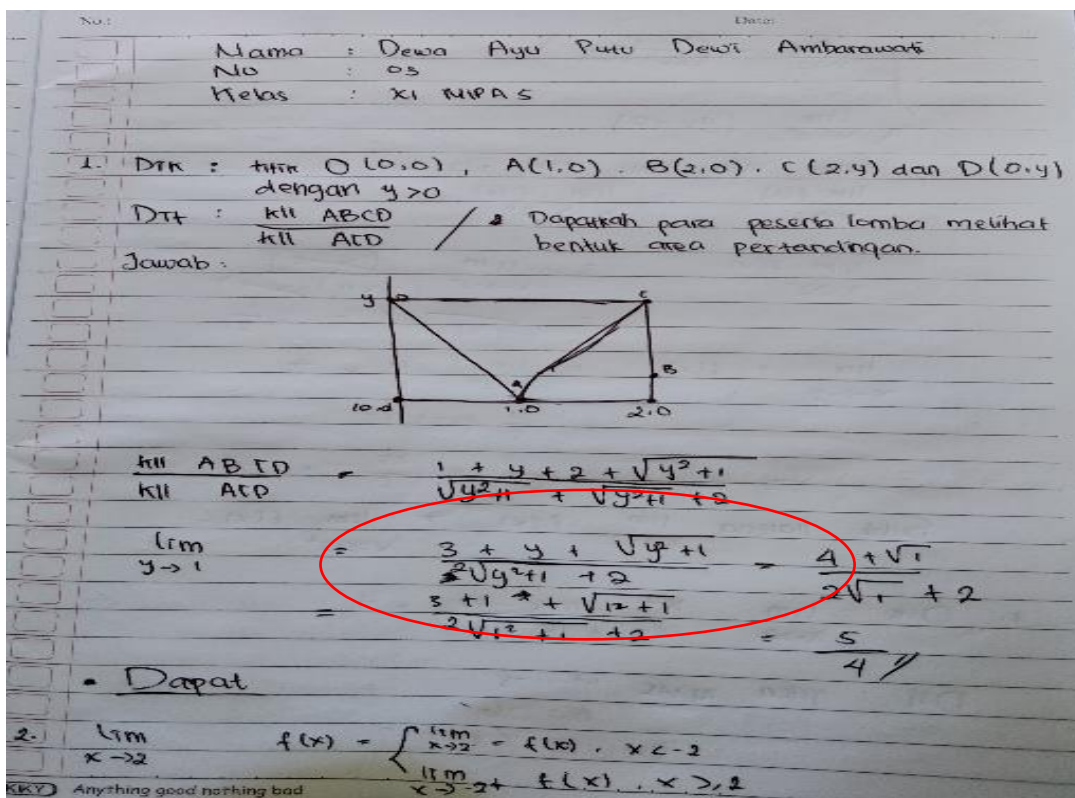 No.: Date:
Nama : Dewa Ayu Putu Dewi Ambarawati
No : 05
Kelas : XI MIPA 5
1. Dik : titik O (0,0), A(1,0). B(2,0). C(2,y) dan D(0,y)
dengan y>0
Dit : kll ABCD / kll ACD Dapatkah para peserta lomba melihat
bentuk area pertandingan.
Jawab :
y D C
A B
1.0 2.0
kll ABCD / kll ACD = 1 + y + 2 + √y²+1 / √y²+1 + √y²+1 + 2
lim y→1 = 3 + y + √y²+1 / 2√y²+1 + 2 = 4 + √1 / 2√1 + 2
= 3 + 1 + √1²+1 / 2√1²+1 + 2 = 5/4 //
• Dapat
2.) lim x→2 f(x) = { lim x→2 - f(x), x < -2
lim x→-2+ f(x), x >, 2
KKY Anything good nothing bad